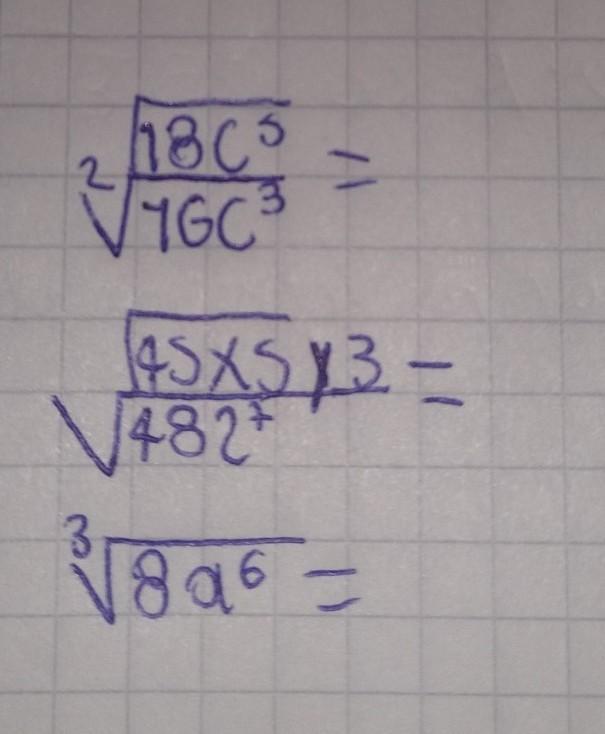 2√18C⁵ =
√16C³
√45x⁵y³ =
√48z⁷
3√8a⁶ =